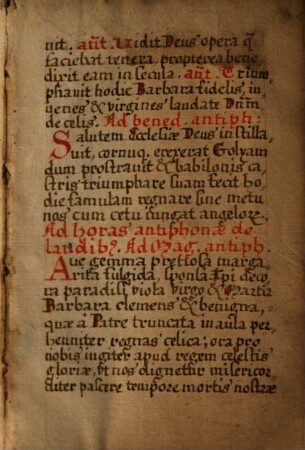 uit. añt. Uidit Deus opera q̃
faciebat tenera, propterea bene
dixit eam in secula. añt. Trium
phauit hodie Barbara fidelis, in
uenes & virgines laudate Dñm
de celis. Ad bened. antiph:
Salutem Ecclesiæ Deus instilla
uit, cornuq. erexerat Golyam
dum prostrauit & babilonis ca,
stris triumphare suam fecit ho,
die famulam regnare sine metu
nos cum cetu iungat angelorẽ.
Ad horas antiphonæ de
laudibꝰ. Ad Mag. antiph.
Aue gemma pretiosa marga,
rita fulgida, sponsa Xpi deco
ra paradisi viola virgo & Martir
Barbara clemens & benigna,
quæ à Patre truncata in aula per
henniter regnas celica; ora pro
nobis iugiter apud regem celestis
gloriæ, ut nos dignetur misericor,
diter pascere tempore mortis nostræ